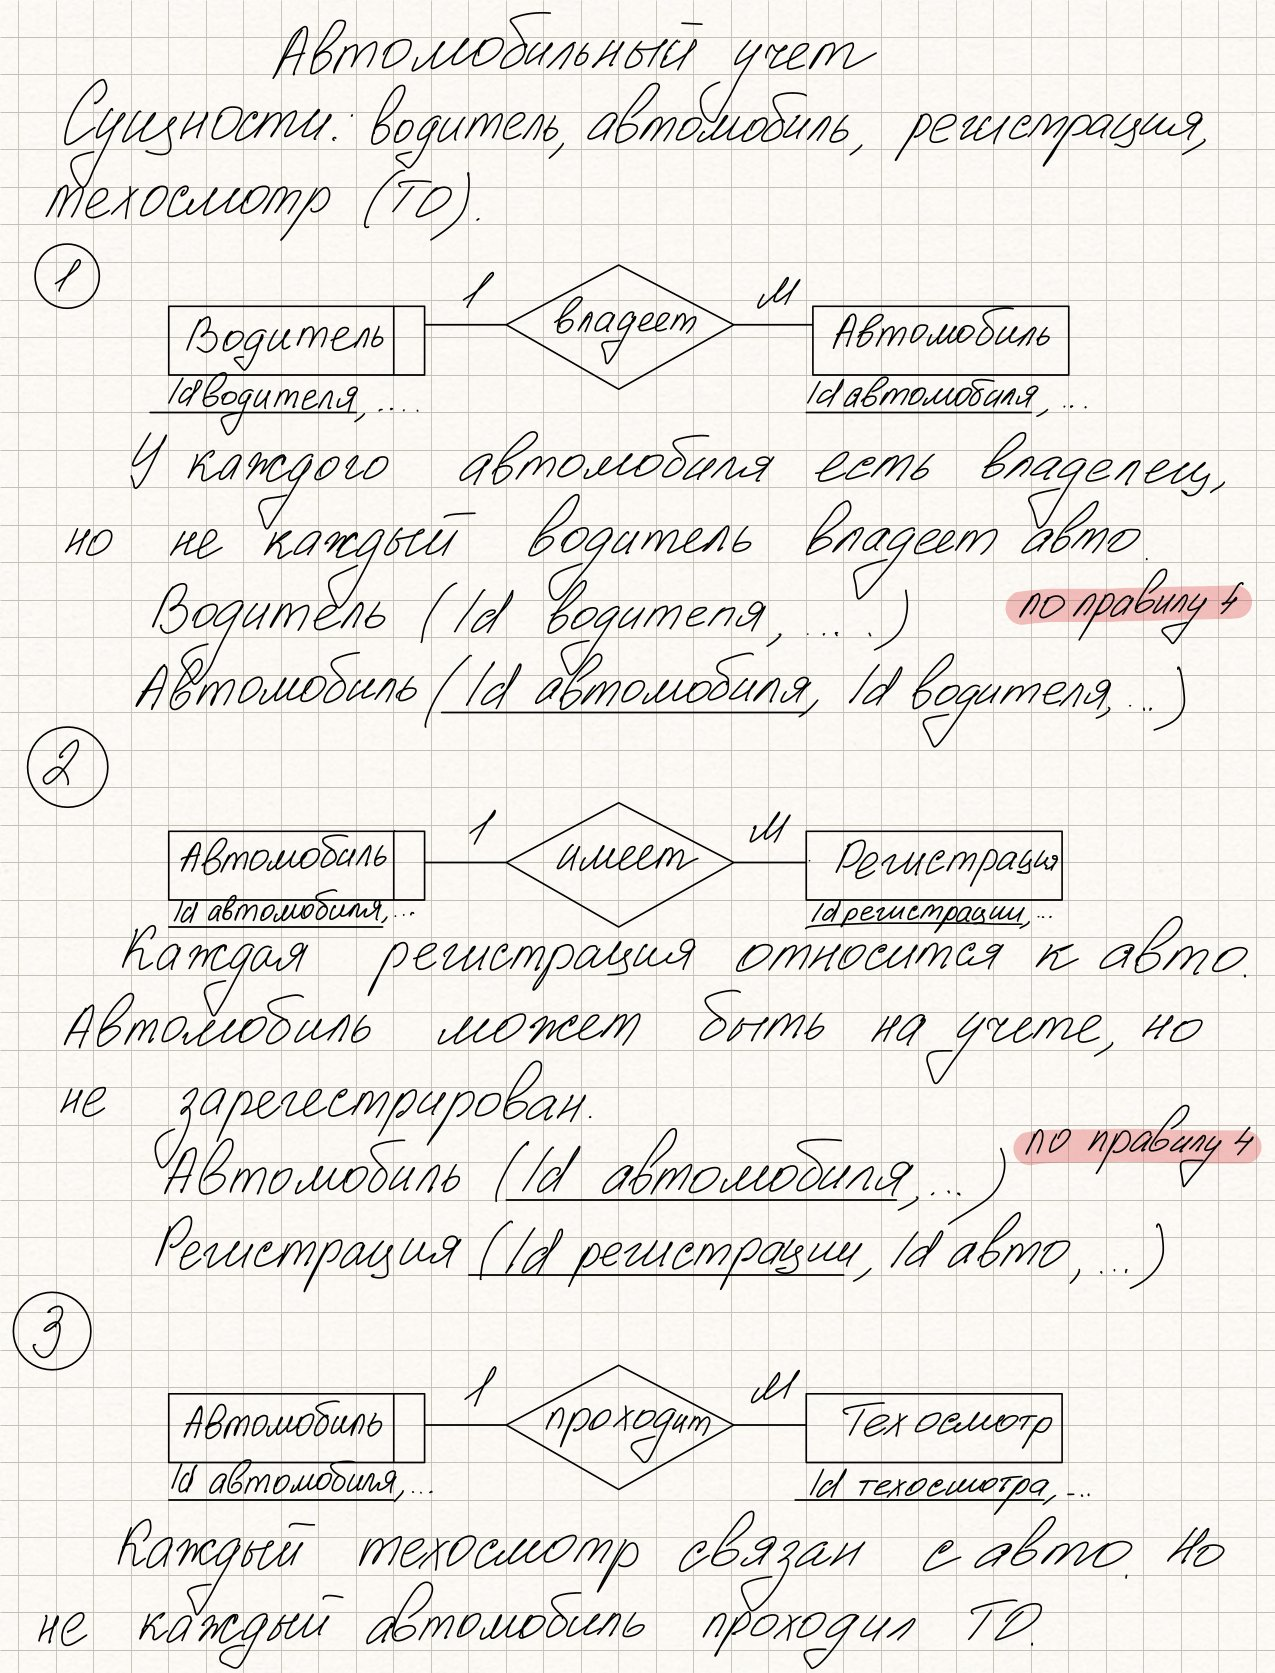 Автомобильный учет
Сущности: водитель, автомобиль, регистрация,
техосмотр (ТО).
1
Водитель 1 владеет М Автомобиль
Id водителя, .... Id автомобиля, ...
У каждого автомобиля есть владелец,
но не каждый водитель владеет авто.
Водитель (Id водителя, .....) по правилу 4
Автомобиль (Id автомобиля, Id водителя, ...)
2
Автомобиль 1 имеет М Регистрация
Id автомобиля, ... Id регистрации, ...
Каждая регистрация относится к авто.
Автомобиль может быть на учете, но
не зарегестрирован.
Автомобиль (Id автомобиля, ...) по правилу 4
Регистрация (Id регистрации, Id авто, ...)
3
Автомобиль 1 проходит М Техосмотр
Id автомобиля, ... Id техосмотра, ...
Каждый техосмотр связан с авто. Но
не каждый автомобиль проходил ТО.